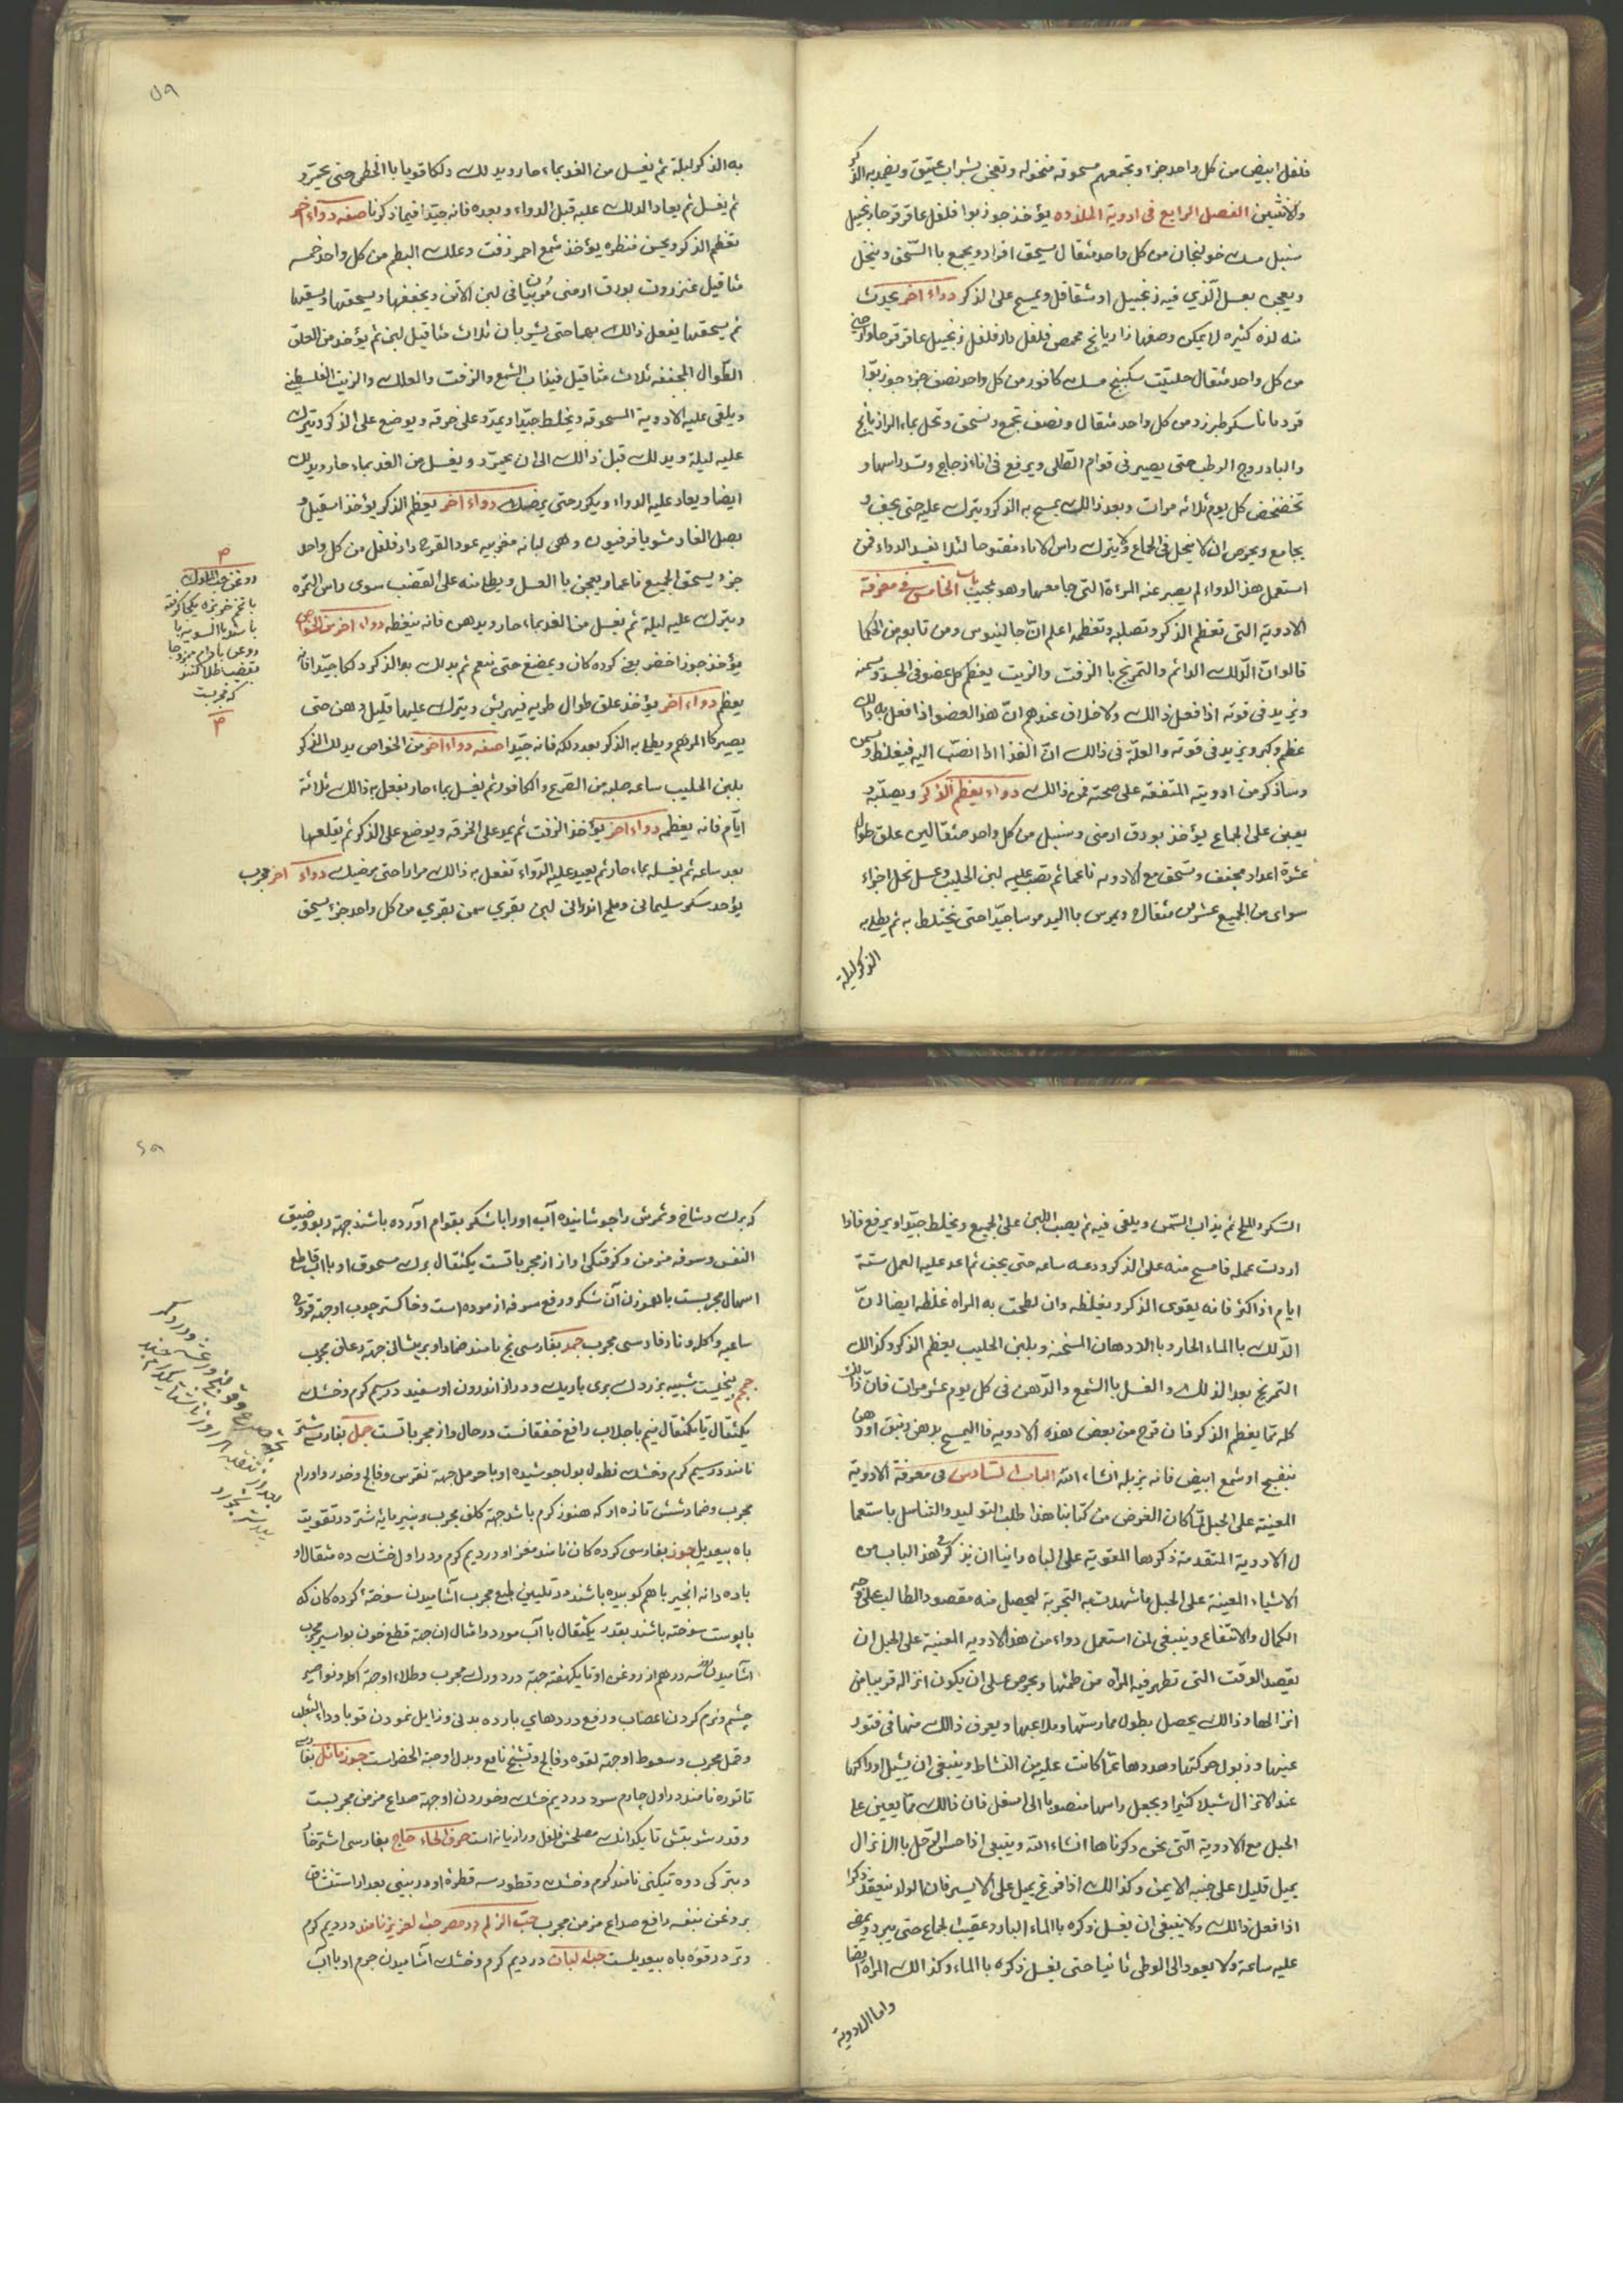 فلفل ابيض من كل واحد جزء وتجمعهم مسحوقه منخوله وتعجن بشراب عتيق ويضمد به الذكر
والانثيين الفصل الرابع فى ادوية الملذذه يؤخذ جوز بوا فلفل عاقرقرحا زنجبيل
سنبل مسك خولنجان من كل واحد مثقال يسحق افراد ويجمع باالسّحق وينخل
ويعجن بعسل الّذي فيه زنجبيل او شقاقل ويمسح على الذكر دواء اخر يحدث
منه لذه كثيره لا يمكن وصفها رازيانج محمص فلفل دار فلفل زنجبيل عاقرقرحا
من كل واحد مثقال حلتيت سكبينج مسك كافور من كل واحد نصف جزء جوز بوّا
قردمانا سكر طبرزد من كل واحد مثقال ونصف تجمع وتسحق وتحل بماء الرازيانج
والبادروج الرطب حتى يصير فى قوام الطلى ويرفع فى اناء زجاج وتسد راسها و
تخضخض كل يوم ثلاثه مرات وبعد ذالك يمسح به الذكر ويترك عليه حتى يجف و
يجامع ويحرص ان لا ينحل فى الجماع ولا يترك راس الاناء مفتوحا لئلا يفسد الدواء فمن
استعمل هذا الدواء لم يصبر عنه المرءة التى جامعها وهو عجيب الباب الخامس فى معرفة
الادوية التى تعظم الذكر وتصلبه وتغظمه اعلم انّ جالينوس ومن تابعه من الحكما
قالوا انّ الدّلك الدائم والتمريخ باالزفت والزيت يعظم كل عضو فى الجسد ويسمنه
ويزيد فى قوته اذا فعل ذالك ولا خلاف عندهم انّ هذا العضو اذا فعل به ذالك
عظم وكبر ويزيد فى قوته والعلّة فى ذالك انّ الغذا اذا انصّب اليه فيغلظ ويسمن
وساذكر من ادويته المتفقه على صحته فمن ذالك دواء يعظم الذكر ويصلبه و
يعين على الجماع يؤخذ بورق ارمنى وسنبل من كل واحد مثقالين علق طوال
عشرة اعداد مجفف وتسحق مع الادويه ناعما ثم تصب عليه لبن الحليب وعسل نحل اجزاء
سواى من الجميع عشرين مثقال ويمرس باليد مرسا جيّدا حتى يختلط به ثم يطلى به
الذكر ليلة
٥٩
به الذكر ليلة ثم يغسل من الغد بماء حار ويدلك دلكا قويا باالخطمى حتى يحمّر و
ثم يغسل ثم يعاد الدلك عليه قبل الدواء وبعده فانه جيّد فيما ذكرنا صفه دواء اخر
تعظم الذكر ويحسن منظره يؤخذ شمع احمر زفت وعلك البطم من كل واحد خمسه
مثاقيل عنزروت بورق ارمنى مُربّيان فى لبن الاتن ويجففها ويسحقها ويسقيها
ثم يسحقها يفعل ذالك بهما حتى يشربان ثلاث مثاقيل لبن ثم يؤخذ من العلق
الطّوال المجففه ثلاث مثاقيل فيذاب الشمع والزفت والعلك والزيت الفلسطينى
ويلقى عليه الادوية المسحوقه ويخلط جيّدا ويمدّ على خرقه ويوضع على الذكر ويترك
عليه ليلة ويدلك قبل ذالك الى ان يحمرّ ويغسل من الغد بماء حار ويدلك
ايضا ويعاد عليه الدواء ويكرر حتى يرضيك دواء اخر يعظم الذكر يؤخذ اسقيل و
بصل الفار مشويا فرفيون وهى لبانه مغربيه عود القرح دار فلفل من كل واحد
جزء يسحق الجميع ناعما ويعجن باالعسل ويطلى منه على القضيب سوى راس الثمره
ويترك عليه ليلة ثم يغسل من الغد بماء حار ويدهن فانه يغظه دواء اخر من الخواص
يؤخذ جوز اخضر يعنى كرده كان ويمضغ حتى ينعم ثم يدلك به الذكر دلكا جيّدا فانه
يعظم دواء اخر يؤخذ علق طوال طريه فيهريش ويترك عليها قليل دهن حتى
يصير كالمرهم ويطلى به الذكر بعد دلكه فانه جيّد صفه دواء اخر من الخواص يدلك الذكر
بلبن الحليب ساعه حلبه من الضرع والكافور ثم يغسل بماء حار يفعل به ذالك ثلاثة
ايّام فانه يعظمه دواء اخر يؤخذ الزفت ثم يمد على الخرقه ويوضع على الذكر ثم يقلعها
بعد ساعه ثم يغسله بماء حار ثم يعيد عليه الدّواء تفعل به ذالك مرارا حتى يرضيك دواء اخر مجرب
يؤخد سكر سليمانى وملح اندرانى لبن بقرى سمن بقرى من كل واحد جزء يسحق
روغن حب الملوك
با تخم خربزه يكجا كرفته
روغن بادام ممزوجا
بقضيب طلا كنند
كه مجربست
السكر والملح ثم يذاب السّمن ويلقى فيه ثم يصب اللبن على الجميع ويخلط جيّدا ويرفع فاذا
اردت عمله فامسح منه على الذكر ودعه ساعه حتى يجف ثم اعد عليه العمل ستة
ايام اذ اكثر فانه يقوى الذكر ويغلظه وان لطخت به المراه غلظه ايضا لانّ
الدّلك باالماء الحار وباالادهان المسخنه وبلبن الحليب يعظم الذكر وكذالك
التمريخ بعد الدلك والغسل باالشمع والدّهن فى كل يوم عشر مرات فانّ ذالك
كله ممّا يعظم الذكر فان قرح من بعض هذه الادويه فاالتمسيح بدهن زنبق او دهن
بنفسج او شمع ابيض فانه يزيله انشاء الله الباب السّادس فى معرفة الادوية
المعينة على الحبل لمّا كان الغرض من كتابنا هذا طلب التوليد والتناسل باستعما
ل الادوية المتقدمة ذكرها المقوية على الباه راينا ان نذكر فى هذ الباب من
الاشياء المعينة على الحبل ما شهدت به التجربة ليحصل منه مقصود الطالب على وجه
الكمال والانتفاع وينبغى لمن استعمل دواء من هذ الادويه المعنية على الحبل ان
يقصد الوقت التى تطهر فيه المرأه من طمثها ويحرص على ان يكون انزاله قريبا من
انزالها وذالك يحصل بطول ممارستها وملاعبها ويعرف ذالك منها فى فتور
عينها وذبول حركتها وهدوها عمّا كانت عليه من النشاط وينبغى ان يشيل اوراكها
عند الانزال شيلا كثيرا ويجعل راسها منصوبا الى اسفل فان ذالك ممّا يعين على
الحبل مع الادوية الّتى نحن ذكرناها انشاء الله وينبغى اذا حس الرّجل باالانزال
يميل قليلا على جنبه الايمن وكذالك اذا فرغ يميل على الايسر فان الولد ينعقد ذكرا
اذا فعل ذالك ولا ينبغى ان يغسل ذكره باالماء البارد عقيب الجماع حتى يبرد ويمضى
عليه ساعة ولا يعود الى الوطى ثانيا حتى يغسل ذكره باالماء وكذالك المراه ايضا
واما الادوية
٦٩
كه برك وشاخ وثمرش را جوشانيده آب او را با شكر بقوام آورده باشند جهة ربو وضيق
النفس وسرفه مزمن وكرفتكى اواز از مجرباتست يكمثقال برك مسحوق او با آب قاطع
اسهال مجربست با هموزن آن شكر و رفع سرفه ازموده است وخاكستر چوب او جهة قروح
ساعيه واكله ونار فارسى مجرب جمد بفارسى يخ نامند ضماد او بر پيشانى جهة رعاف مجرب
جحم بيخيست شبيه بزردك برى باريك و دراز اندرون او سفيد در سيم كرم وخشك
يكمثقال تا يكمثقال نيم با جلاب رافع خفقانست در حال و از مجرباتست جمل بفارسى شتر
نامند در سيم كرم وخشك نطول بول جوشيده او با حرمل جهة نقرس وفالج وخدر واورام
مجرب وضماد شش تازه او كه هنوز كرم باشد جهة كلف مجرب وپنير مايهٔ شتر در تقويت
باه بيعديل جوز بفارسى كرده كان نامند مغز او در ديم كرم و در اول خشك ده مثقال او
با ده دانه انجير با هم كوبيده باشند در تليين طبع مجرب آشاميدن سوختهٔ كرده كان كه
با پوست سوخته باشند بقدر يكمثقال با آب مورد و امثال ان جهة قطع خون بواسير مجرب
اشاميدن سه درهم از روغن او تا يكهفته جهة درد ورك مجرب وطلاء او جهة اكله ونواصير
چشم ونرم كردن اعصاب و رفع دردهاى بارده بدنى وزايل نمودن قوبا وداء الثعلب
وقمل مجرب وسعوط او جهة لقوه وفالج وتشنج نافع وبدل او حبة الخضراست جوز ماثل بفارسى
تاتوره نامند در اول چارم سرد در ديم خشك وخوردن او جهة صداع مزمن مجربست
وقدر شربتش تا يكدانك مصلحش فلفل و رازيانه است حرف الحاء حاج بفارسى اشتر خار
وبتركى دوه تيكنى نامند كرم وخشك وقطور سه قطره او در بينى بعد از استنشاق
بروغن بنفسه رافع صداع مزمن مجرب حبّ الزلم در مصر حب العزيز نامند در ديم كرم
وتر در قوّه باه بيعديلست حبّه لبان در ديم كرم وخشك آشاميدن جرم او با آب